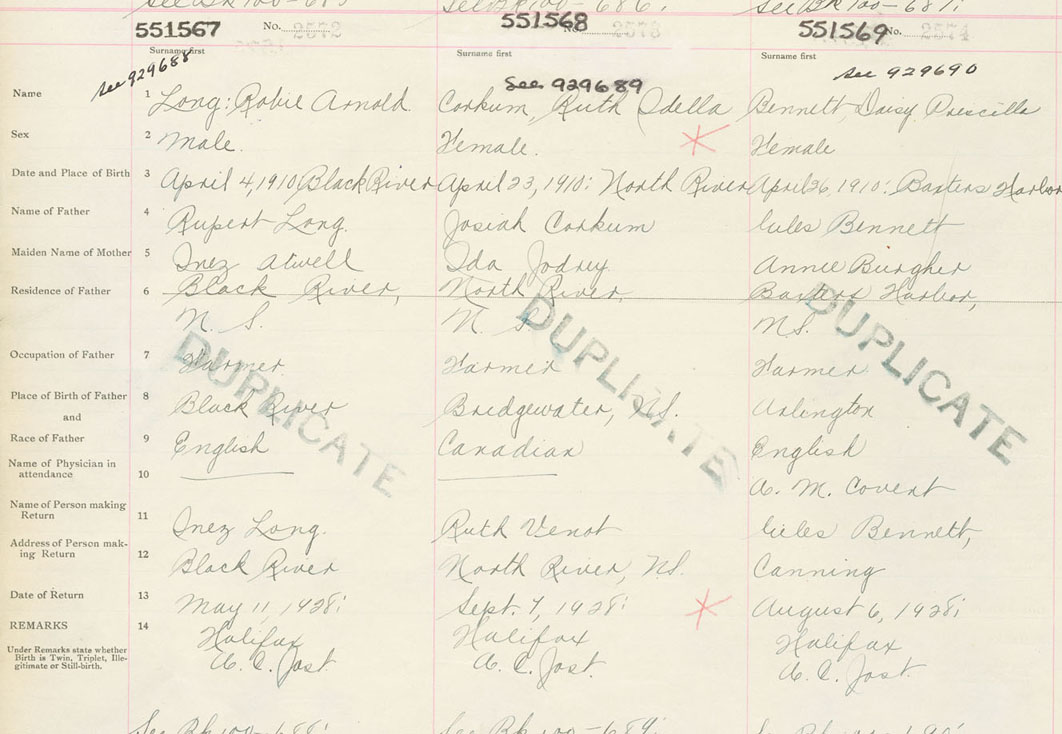 See Bk 100-686.
See Bk 100-687.
551567 No. 2572
551568 No. 2573
551569 No. 2574
Surname first Surname first Surname first
see 929688 See 929689 see 929690
Name 1 Long: Robie Arnold. Corkum, Ruth Idella Bennett, Daisy Priscilla
Sex 2 Male. Female. Female
Date and Place of Birth 3 April 4, 1910, Black River April 23, 1910: North River April 26, 1910: Baxters Harbor
Name of Father 4 Rupert Long. Josiah Corkum Bennett
Maiden Name of Mother 5 Inez Atwell Ida Jodrey Annie Burgher
Residence of Father 6 Black River, North River, Baxters Harbor,
N. S. N. S. N.S.
Occupation of Father 7 Farmer Farmer Farmer
Place of Birth of Father 8 Black River Bridgewater, N.S. Arlington
and
Race of Father 9 English Canadian English
Name of Physician in
attendance 10 A. M. Covert
Name of Person making
Return 11 Inez Long. Ruth Venot Bennett,
Address of Person mak-
ing Return 12 Black River North River, N.S. Canning
Date of Return 13 May 11, 1928: Sept. 7, 1928: August 6, 1928:
REMARKS 14 Halifax Halifax Halifax
Under Remarks state whether
Birth is Twin, Triplet, Ille-
gitimate or Still-birth.
A. C. Jost. A. C. Jost. A. C. Jost.
DUPLICATE DUPLICATE DUPLICATE
See Bk 100-688: See Bk 100-689: